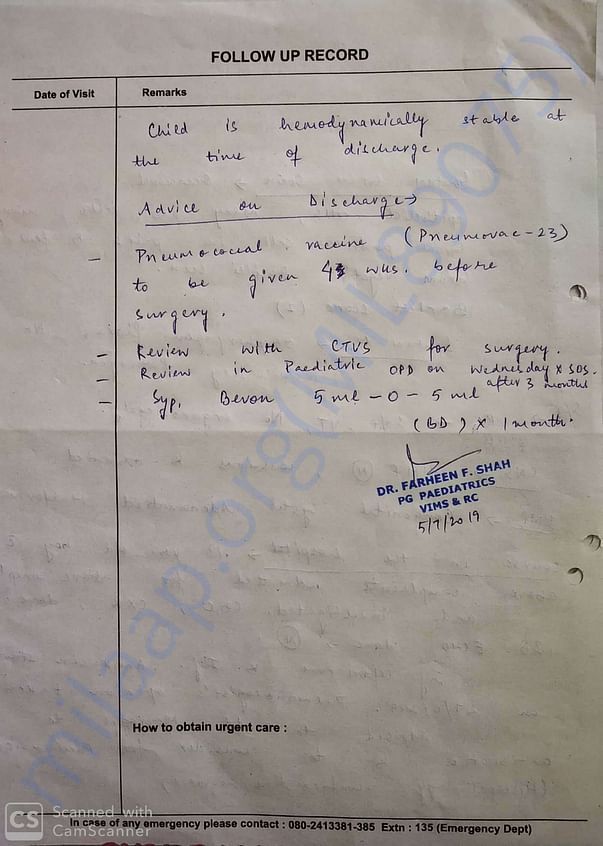 FOLLOW UP RECORD
Date of Visit Remarks
Child is hemodynamically stable at
the time of discharge.
Advice on Discharge →
- Pneumococcal vaccine (Pneumovac-23)
to be given 4 wks. before
surgery.
- Review with CTVS for surgery.
- Review in Paediatric OPD on Wednesday x SOS.
after 3 months
- Syp. Bevon 5 ml - 0 - 5 ml
(BD) x 1 month.
DR. FARHEEN F. SHAH
PG PAEDIATRICS
VIMS & RC
5/7/2019
How to obtain urgent care :
In case of any emergency please contact : 080-2413381-385 Extn : 135 (Emergency Dept)
milaap.org(MIL89075)
CS Scanned with
CamScanner